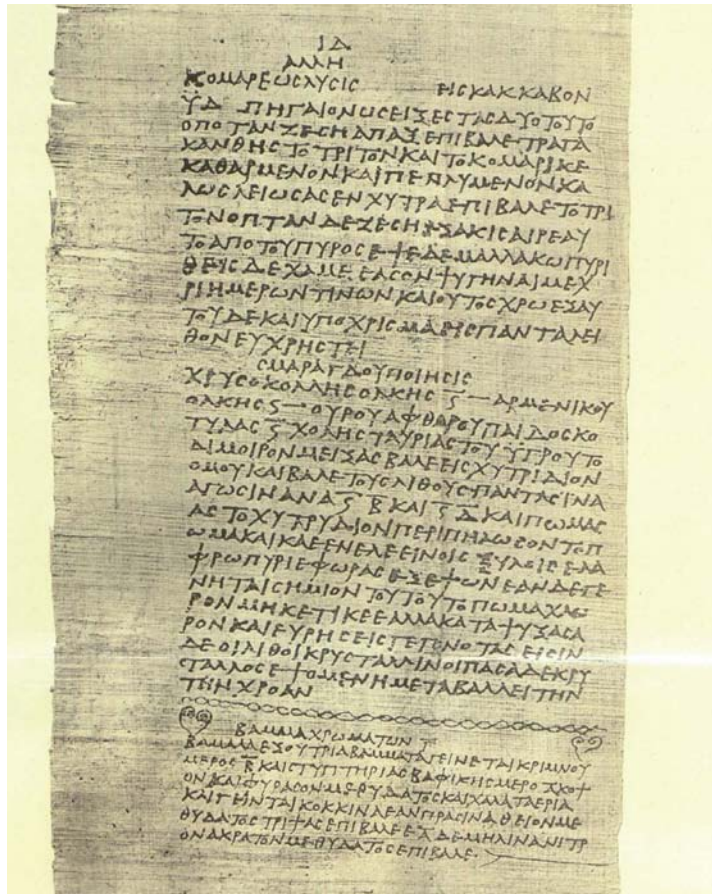 ΙΔ
ΑΛΛΗ
ΚΟΜΑΡΕΩϹΛΥϹΙϹ ΕΙϹΚΑΚΚΑΒΟΝ
ΫΔ ΠΗΓΑΙΟΝΩϹΕΙΞΕϹΤΑϹΔΥΟΤΟΥΤΟ
ΟΠΟΤΑΝΖΕϹΗΑΠΑΞΕΠΙΒΑΛΕΤΡΑΓΑ
ΚΑΝΘΗϹΤΟΤΡΙΤΟΝΚΑΙΤΟΚΟΜΑΡΙΚΕ
ΚΑΘΑΡΜΕΝΟΝΚΑΙΠΕΠΛΥΜΕΝΟΝΚΑ
ΛΩϹΛΕΙΩϹΑϹΕΝΧΥΤΡΑΕΠΙΒΑΛΕΤΟΤΡΙ
ΤΟΝΟΠΤΑΝΔΕΖΕϹΗ ΞΑΚΙϹΑΙΡΕΑΥ
ΤΟΑΠΟΤΟΥΠΥΡΟϹΕΨΕΔΕΜΑΛΛΑΚΩΠΥΡΙ
ΘΕΙϹΔΕΧΑΜΕ ΕΑϹΟΝΨΥΓΗΝΑΙΜΕΧ
ΡΙΗΜΕΡΩΝΤΙΝΩΝΚΑΙΟΥΤΟϹΧΡΩΕΞΑΥ
ΤΟΥΔΕΚΑΙΥΠΟΧΡΙϹΜΑΕΙϹΠΑΝΤΑΛΕΙ
ΘΟΝΕΥΧΡΗϹΤΕΙ
ϹΜΑΡΑΓΔΟΥΠΟΙΗϹΙϹ
ΧΡΥϹΟΚΟΛΛΗϹΟΛΚΗϹ Ϛ — ΑΡΜΕΝΙΚΟΥ
ΟΛΚΗϹ Ϛ — ΟΥΡΟΥΑΦΘΟΡΟΥΠΑΙΔΟϹΚΟ
ΤΥΛΑϹ Ϛ ΧΟΛΗϹΤΑΥΡΙΑϹΤΟΥΫΓΡΟΥΤΟ
ΔΙΜΟΙΡΟΝΜΕΙΞΑϹΒΑΛΕΕΙϹΧΥΤΡΙΔΙΟΝ
ΟΜΟΥΚΑΙΒΑΛΕΤΟΥϹΛΙΘΟΥϹΠΑΝΤΑϹΙΝΑ
ΑΓΩϹΙΝΑΝΑ Ϛ Β ΚΑΙ Ϛ Δ ΚΑΙΠΩΜΑϹ
ΑϹΤΟΧΥΤΡΥΔΙΟΝΠΕΡΙΠΗΛΩϹΟΝΤΟΠ
ΩΜΑΚΑΙΚΑΕΕΝΕΛΕΕΙΝΟΙϹΞΥΛΟΙϹΕΛΑ
ΦΡΩΠΥΡΙΕΦΩΡΑϹΕΞΕΨΩΝΕΑΝΔΕΓΕ
ΝΗΤΑΙϹΗΜΙΟΝΤΟΥΤΟΥΤΟΠΩΜΑΧΛΩ
ΡΟΝΜΗΚΕΤΙΚΕΕΑΛΛΑΚΑΤΑΨΥΞΑϹΑ
ΡΟΝΚΑΙΕΥΡΗϹΕΙϹΓΕΓΟΝΟΤΑϹΕΙϹΙΝ
ΔΕΟΙΛΙΘΟΙΚΡΥϹΤΑΛΛΙΝΟΙΠΑϹΑΔΕΚΡΥ
ϹΤΑΛΛΟϹΕΨΟΜΕΝΗΜΕΤΑΒΑΛΛΕΙΤΗΝ
ΤΗΝΧΡΟΑΝ
ΒΑΜΜΑΧΡΩΜΑΤΩΝ Γ
ΒΑΜΜΑΛΕΞΟΥΤΡΙΑΒΑΜΜΑΤΑΓΕΙΝΕΤΑΙΚΡΙΜΝΟΥ
ΜΕΡΟϹ Β ΚΑΙϹΤΥΠΤΗΡΙΑϹΒΑΦΙΚΗϹΜΕΡΟ ΚΟΨ
ΟΝΚΑΙΦΥΡΑϹΟΝΜΕΘΥΔΑΤΟϹΚΑΙΧΑΛΑΤΑΕΡΙΑ
ΚΑΙΓΕΙΝΤΑΙΚΟΚΚΙΝΑΕΑΝΠΡΑϹΙΝΑΘΕΙΟΝΜΕ
ΘΥΔΑΤΟϹΤΡΙΨΑϹΕΠΙΒΑΛΕΕΑΔΕΜΗΛΙΝΑΝΙΤΡ
ΟΝΑΚΡΑΤΟΝΜΕΘΥΔΑΤΟϹΕΠΙΒΑΛΕ